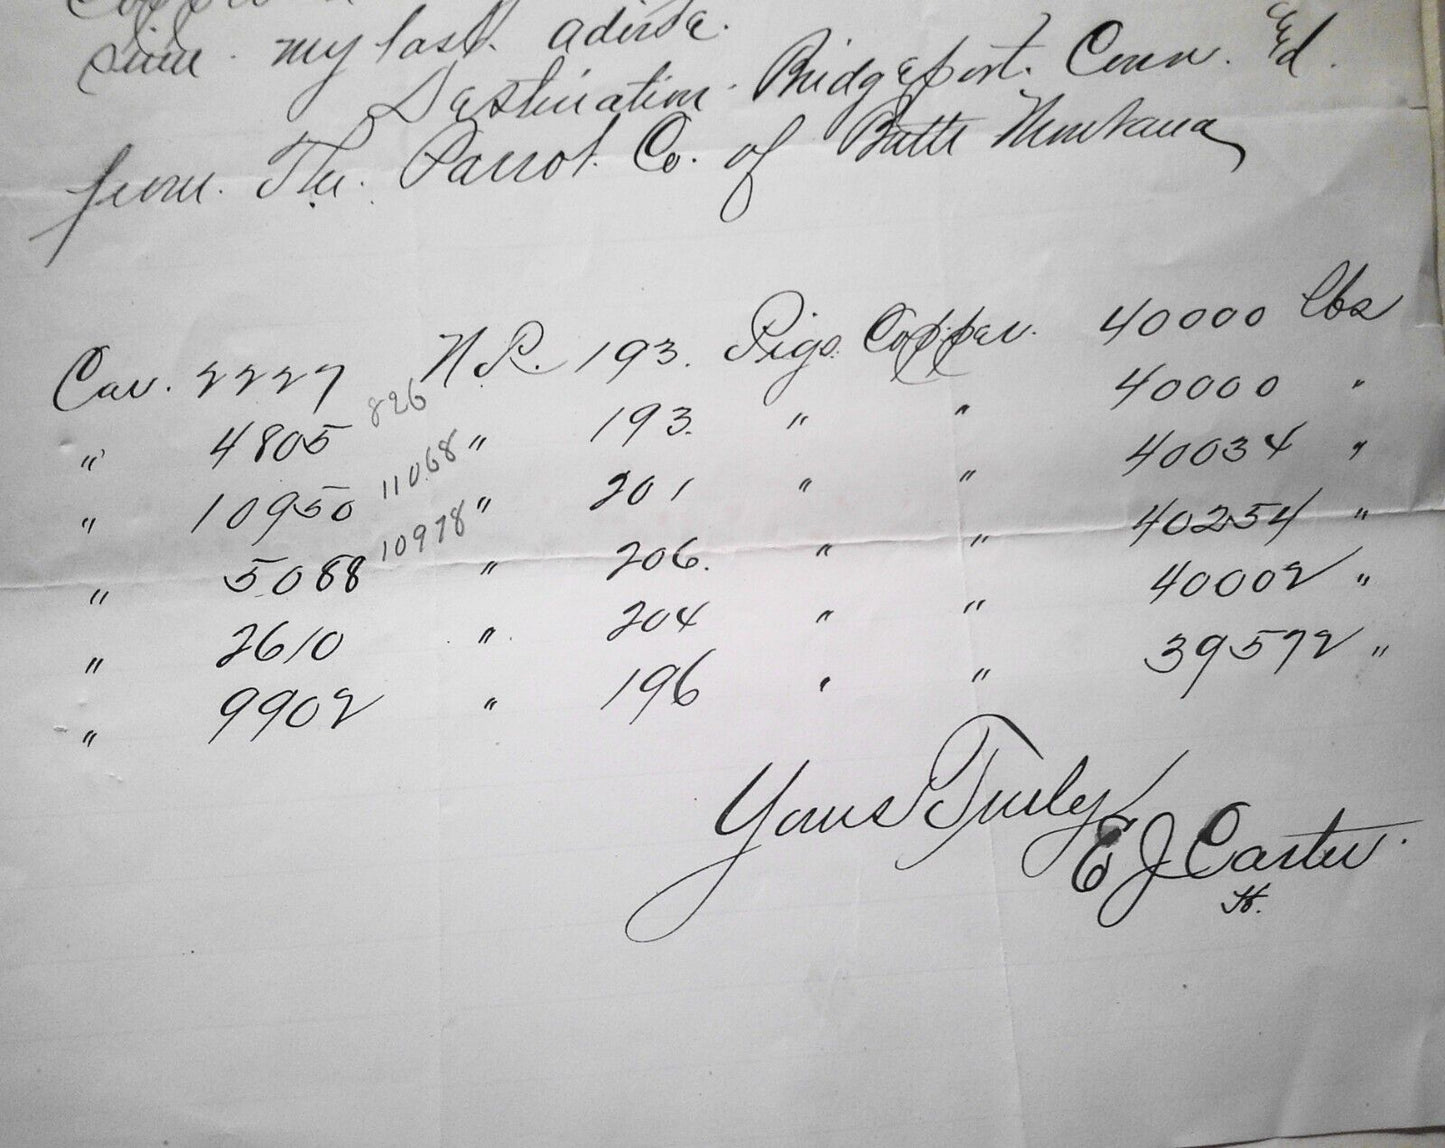 since my last advise.
Destination. Bridgeport. Conn. E'd.
from. The. Parrot. Co. of Butte Montana
Car. 2227 N.P. 193. Pigs Copper. 40000 lbs
" 4805 826 " 193. " " 40000 "
" 10950 11068 " 201 " " 40034 "
" 5088 10978 " 206. " " 40254 "
" 2610 " 204 " " 40002 "
" 9902 " 196 " " 39572 "
Yours Truly
E J Carter
H.